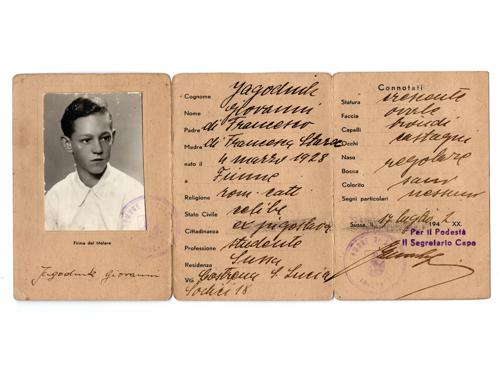 Firma del titolare
Jagodnik Giovanni
Cognome Jagodnik
Nome Giovanni
Padre di Francesco
Madre di Francesca Starac
nato il 4 marzo 1928
a Fiume
Religione rom. catt.
Stato Civile celibe
Cittadinanza ex jugoslava
Professione studente
Residenza Sussa
Via S. Lucia
18
Connotati
Statura crescente
Faccia ovale
Capelli biondi
Occhi castagni
Naso regolare
Bocca
Colorito sano
Segni particolari nessuno
Sussa, 17 luglio 1942 XX.
Per il Podestà
Il Segretario Capo